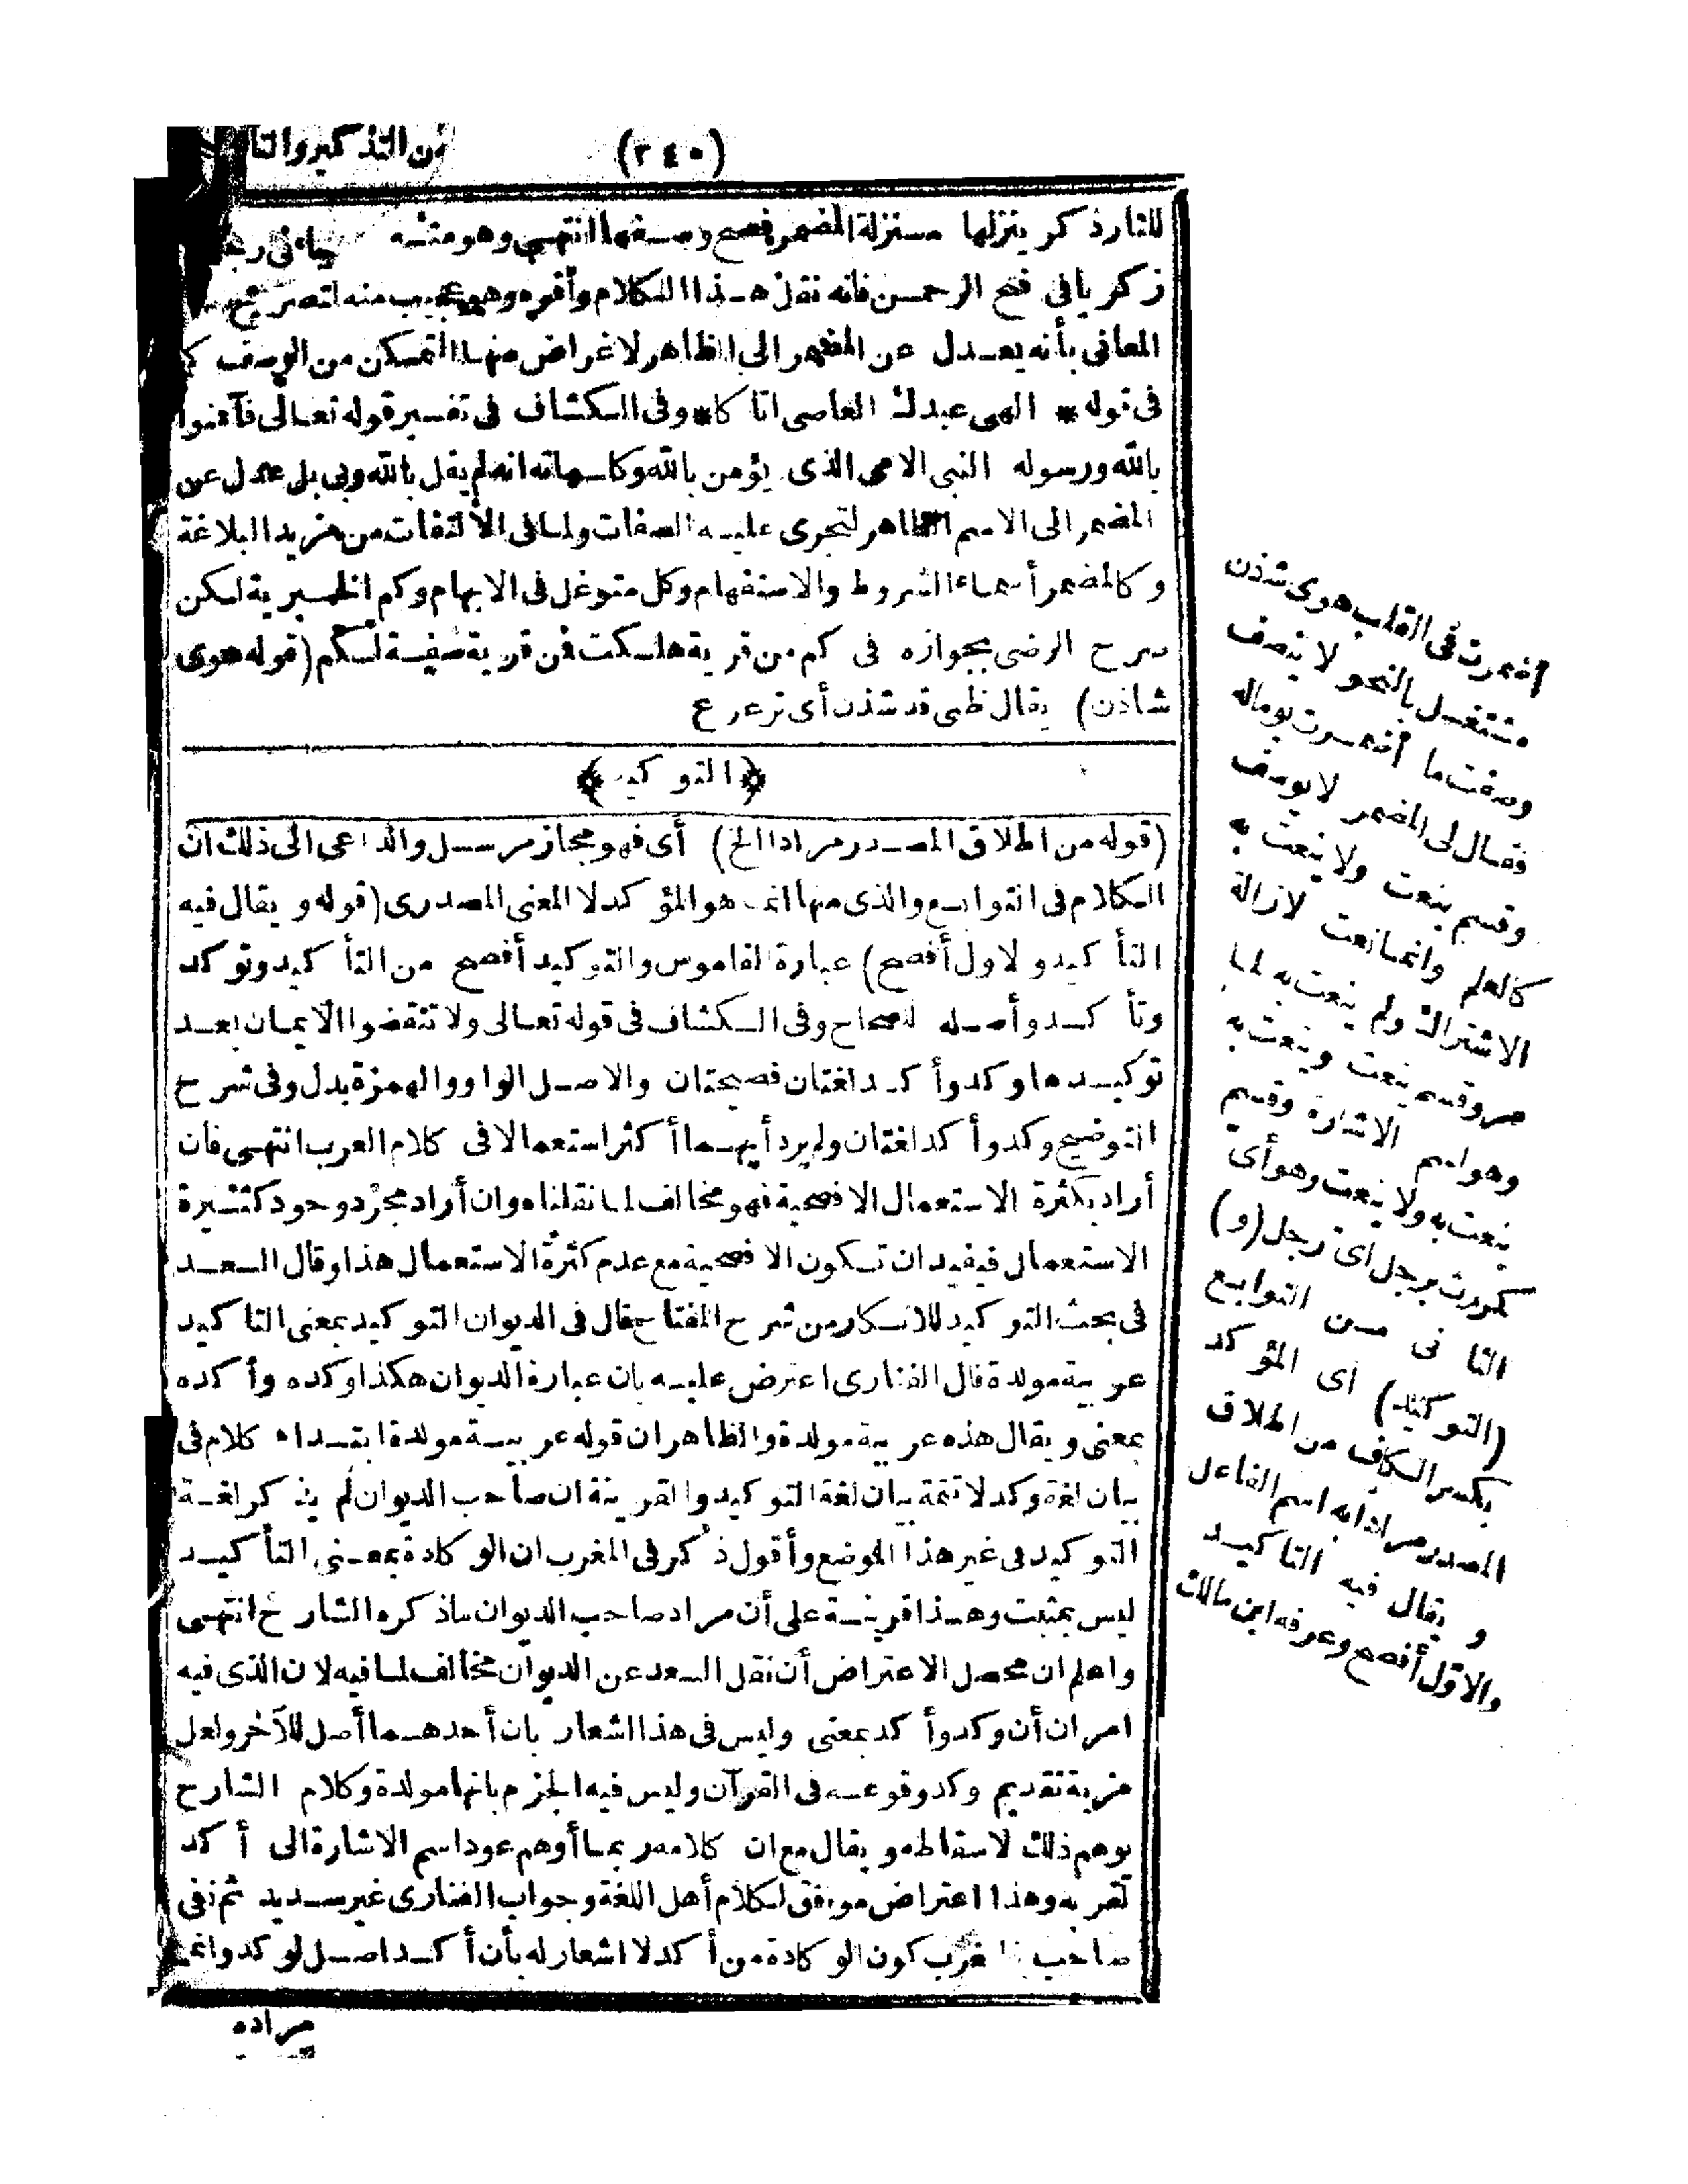 (٢٤٠)
من التذكير والتا
للنار ذكر ينزلها منزلة المضمر فصح وصفها انتهى وهو منه
زكريا فى فتح الرحمن فانه نقل هذا الكلام وأقره وهو عجيب منه لتصريح
المعانى بأنه يعدل عن المضمر الى الظاهر لاغراض منها التمكن من الوصف كما
فى قوله * الهى عبدك العاصى اتاكا * وفى الكشاف فى تفسير قوله تعالى فآمنوا
بالله ورسوله النبى الامى الذى يؤمن بالله وكلماته انه لم يقل بالله وبى بل عدل عن
المضمر الى الاسم الظاهر لتجرى عليه الصفات ولما فى الالتفات من مزيد البلاغة
وكالمضمر أسماء الشروط والاستفهام وكل متوغل فى الابهام وكم الخبرية لكن
صرح الرضى بجوازه فى كم من قرية هلكت فمن قرية صفة لكم (قوله هوى
شاذن) يقال ظبى قد شذن أى ترعرع
﴿التوكيد﴾
(قوله من اطلاق المصدر مرادا الخ) أى فهو مجاز مرسل والداعى الى ذلك ان
الكلام فى التوابع والذى منها انما هو المؤكد لا المعنى المصدرى (قوله ويقال فيه
التأكيد والاول أفصح) عبارة القاموس والتوكيد أفصح من التأكيد وتوكد
وتأكد وأصله للصحاح وفى الكشاف فى قوله تعالى ولا تنقضوا الأيمان بعد
توكيدها وكد وأكد لغتان فصيحتان والاصل الواو والهمزة بدل وفى شرح
التوضيح وكد وأكد لغتان ولم يرد أيهما أكثر استعمالا فى كلام العرب انتهى فان
أراد بكثرة الاستعمال الافصحية فهو مخالف لما نقلناه وان أراد مجرد وجود كثيرة
الاستعمال فيفيد ان تكون الافصحية مع عدم كثرة الاستعمال هذا وقال السعد
فى بحث التوكيد للانكار من شرح المفتاح يقال فى الديوان التوكيد بمعنى التاكيد
عربية مولدة قال الفنارى اعترض عليه بان عبارة الديوان هكذا وكده وأكده
بمعنى ويقال هذه عربية مولدة والظاهر ان قوله عربية مولدة ابتداء كلام فى
بيان لغة وكد لا تتمة بيان لغة التوكيد والقرينة ان صاحب الديوان لم يذكر لغة
التوكيد فى غير هذا الموضع وأقول ذكر فى المغرب ان الوكادة بمعنى التأكيد
ليس بمثبت وهذا قرينة على أن مراد صاحب الديوان ماذكره الشارح انتهى
واعلم ان محصل الاعتراض أن نقل السعد عن الديوان مخالف لما فيه لان الذى فيه
امران أن وكد وأكد بمعنى وليس فى هذا اشعار بان أحدهما أصل للآخر ولعل
مزية تقديم وكد وقوعه فى القرآن وليس فيه الجزم بانها مولدة وكلام الشارح
يوهم ذلك لاسقاطه ويقال مع ان كلامه ربما أوهم عود اسم الاشارة الى أكد
لقربه وهذا اعتراض موافق لكلام أهل اللغة وجواب الفنارى غير سديد ثم نفى
صاحب المغرب كون الوكادة من أكد لا اشعار له بأن أكد اصل لوكد وانما
مراده
اضمرت فى القلب هوى شاذن
مشتغل بالنحو لا ينصف
وصفت ما أضمرت يوماله
فقال لى المضمر لا يوصف
وقسم ينعت ولا ينعت به
كالعلم وانما نعت لازالة
الاشتراك ولم ينعت به لما
مر وقسم ينعت وينعت به
وهو اسم الاشارة وقسم
ينعت به ولا ينعت وهو أى
كمررت برجل أى رجل (و)
الثانى من التوابع
(التوكيد) أى المؤكد
بكسر الكاف من اطلاق
المصدر مرادا به اسم الفاعل
ويقال فيه التاكيد
والاول أفصح وعرفه ابن مالك